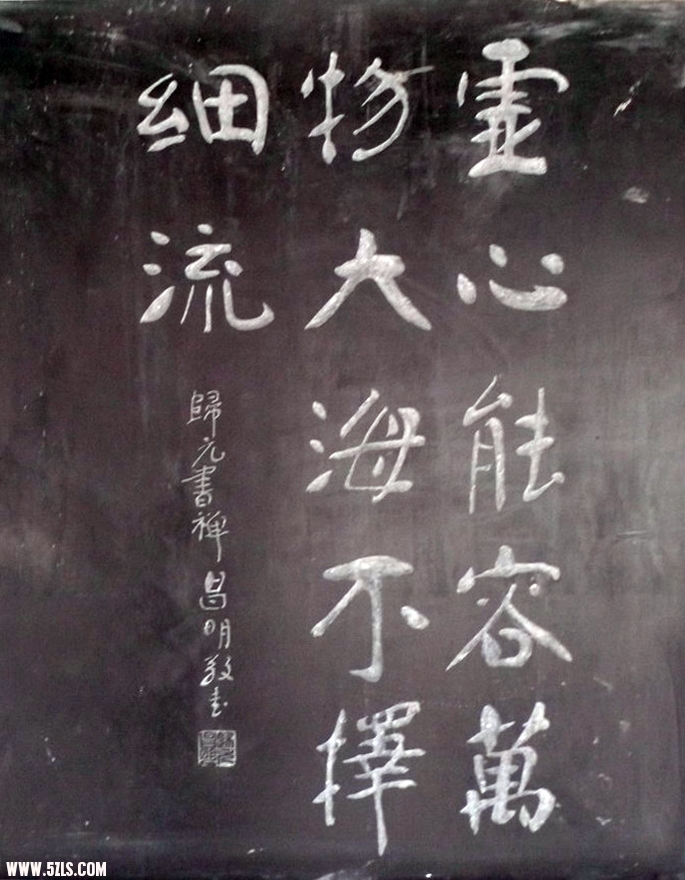 靈心能容萬
物大海不擇
細流
歸元書禪 昌明敬書
WWW.5ZLS.COM